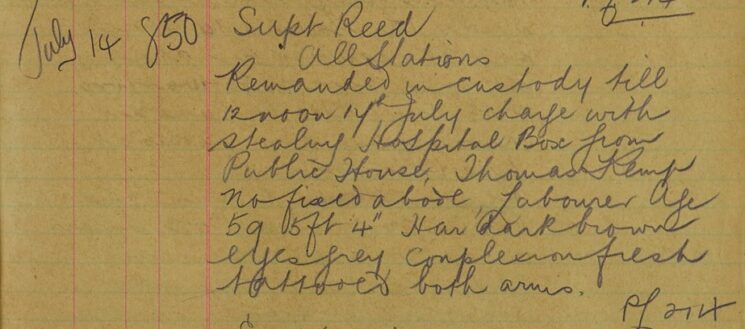 July 14 850 Supt Reed
All Stations
Remanded in custody till
12 noon 17th July charge with
stealing Hospital Box from
Public House, Thomas Kemp
no fixed abode, Labourer Age
59 5ft 4" Hair dark brown
eyes grey complexion fresh
tattooed both arms.
PC 214